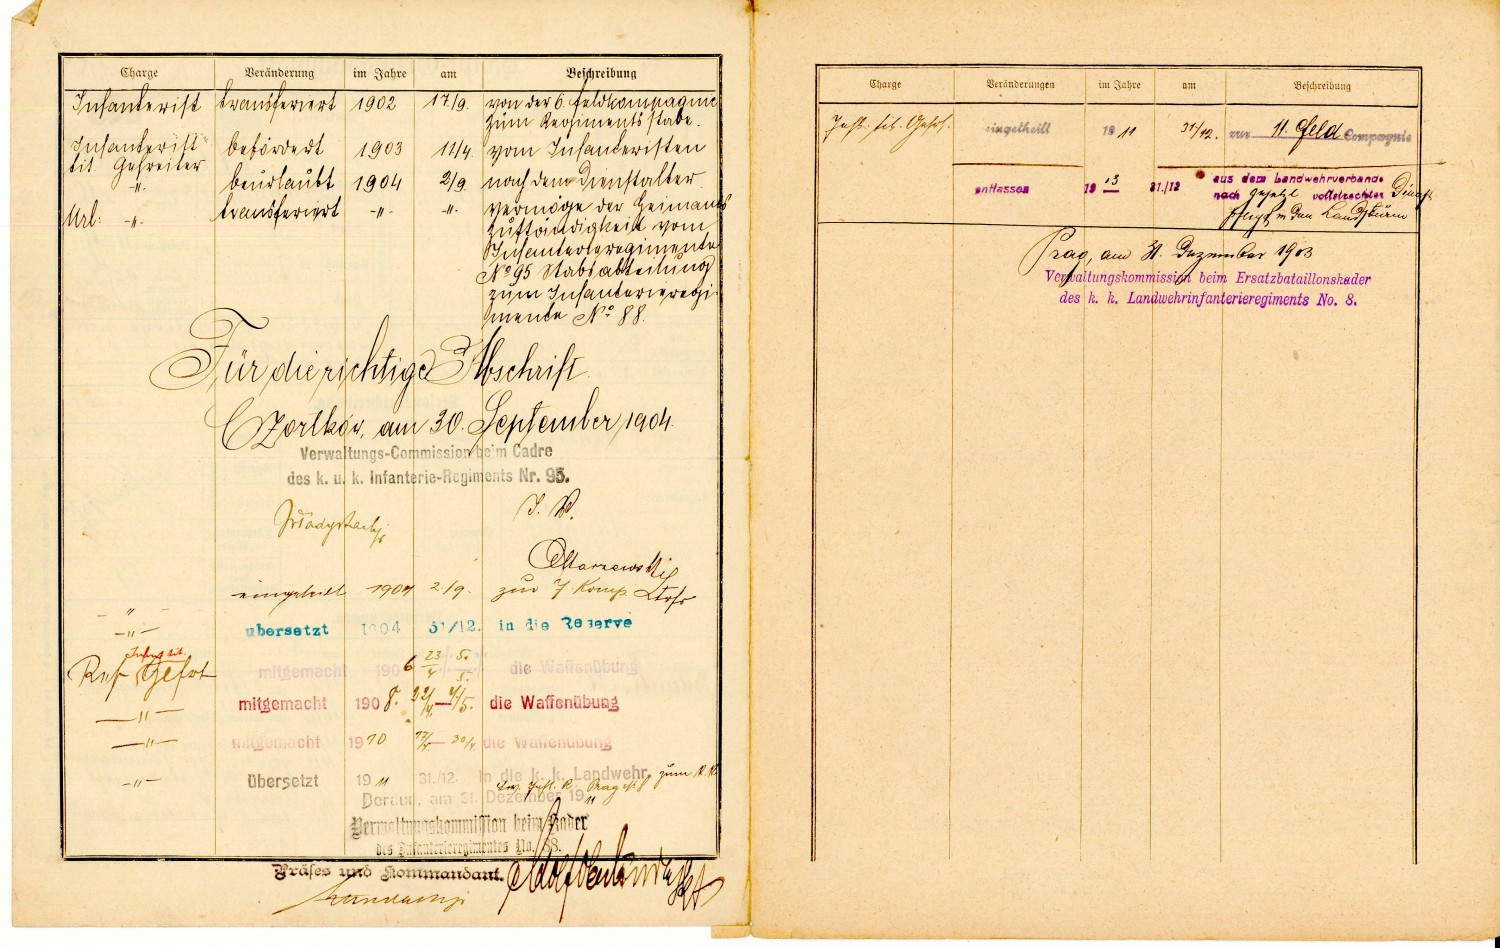 Charge Veränderung im Jahre am Beschreibung
Infanterist transferiert 1902 17/9. von der 6. Feldkompagnie
zum Regimentsstabe.
Infanterist befördert 1903 11/4. vom Infanteristen
tit. Gefreiter
-"- beurlaubt 1904 2/9. nach dem Dienstalter.
Url: -"- transferiert -"- -"- vermöge der Heimats
zuständigkeit vom
Infanterieregimente
No 95 Stabsabteilung
zum Infanterieregi
mente No 88.
Für die richtige Abschrift.
Czortków, am 30. September 1904.
Verwaltungs-Commission beim Cadre
des k. u. k. Infanterie-Regiments Nr. 95.
I. V.
-"- eingeteilt 1904 2/9. zur 7 Komp
-"- übersetzt 1904 31/12. in die Reserve
Inft tit.
Res Gefrt mitgemacht 1906 23/4 - 5./5. die Waffenübung
-"- mitgemacht 1908. 22/4. - 4./5. die Waffenübung
-"- mitgemacht 1910 17/4. - 30/4. die Waffenübung
-"- übersetzt 1911 31./12. in die k. k. Landwehr, zum k. k.
Lw. Inft. R. Prag No 8
Beraun, am 31. Dezember 1911
Verwaltungskommission beim Kader
des Infanterieregimentes No. 88.
Präses und Kommandant.
Charge Veränderungen im Jahre am Beschreibung
Inft. tit. Gefrt. eingetheilt 1911 31/12. zur 11. Feld Compagnie
entlassen 1913 31./12 aus dem Landwehrverbande
nach gesetzl vollstreckter Dienst
pflicht in den Landsturm
Prag, am 31. Dezember 1913
Verwaltungskommission beim Ersatzbataillonskader
des k. k. Landwehrinfanterieregiments No. 8.